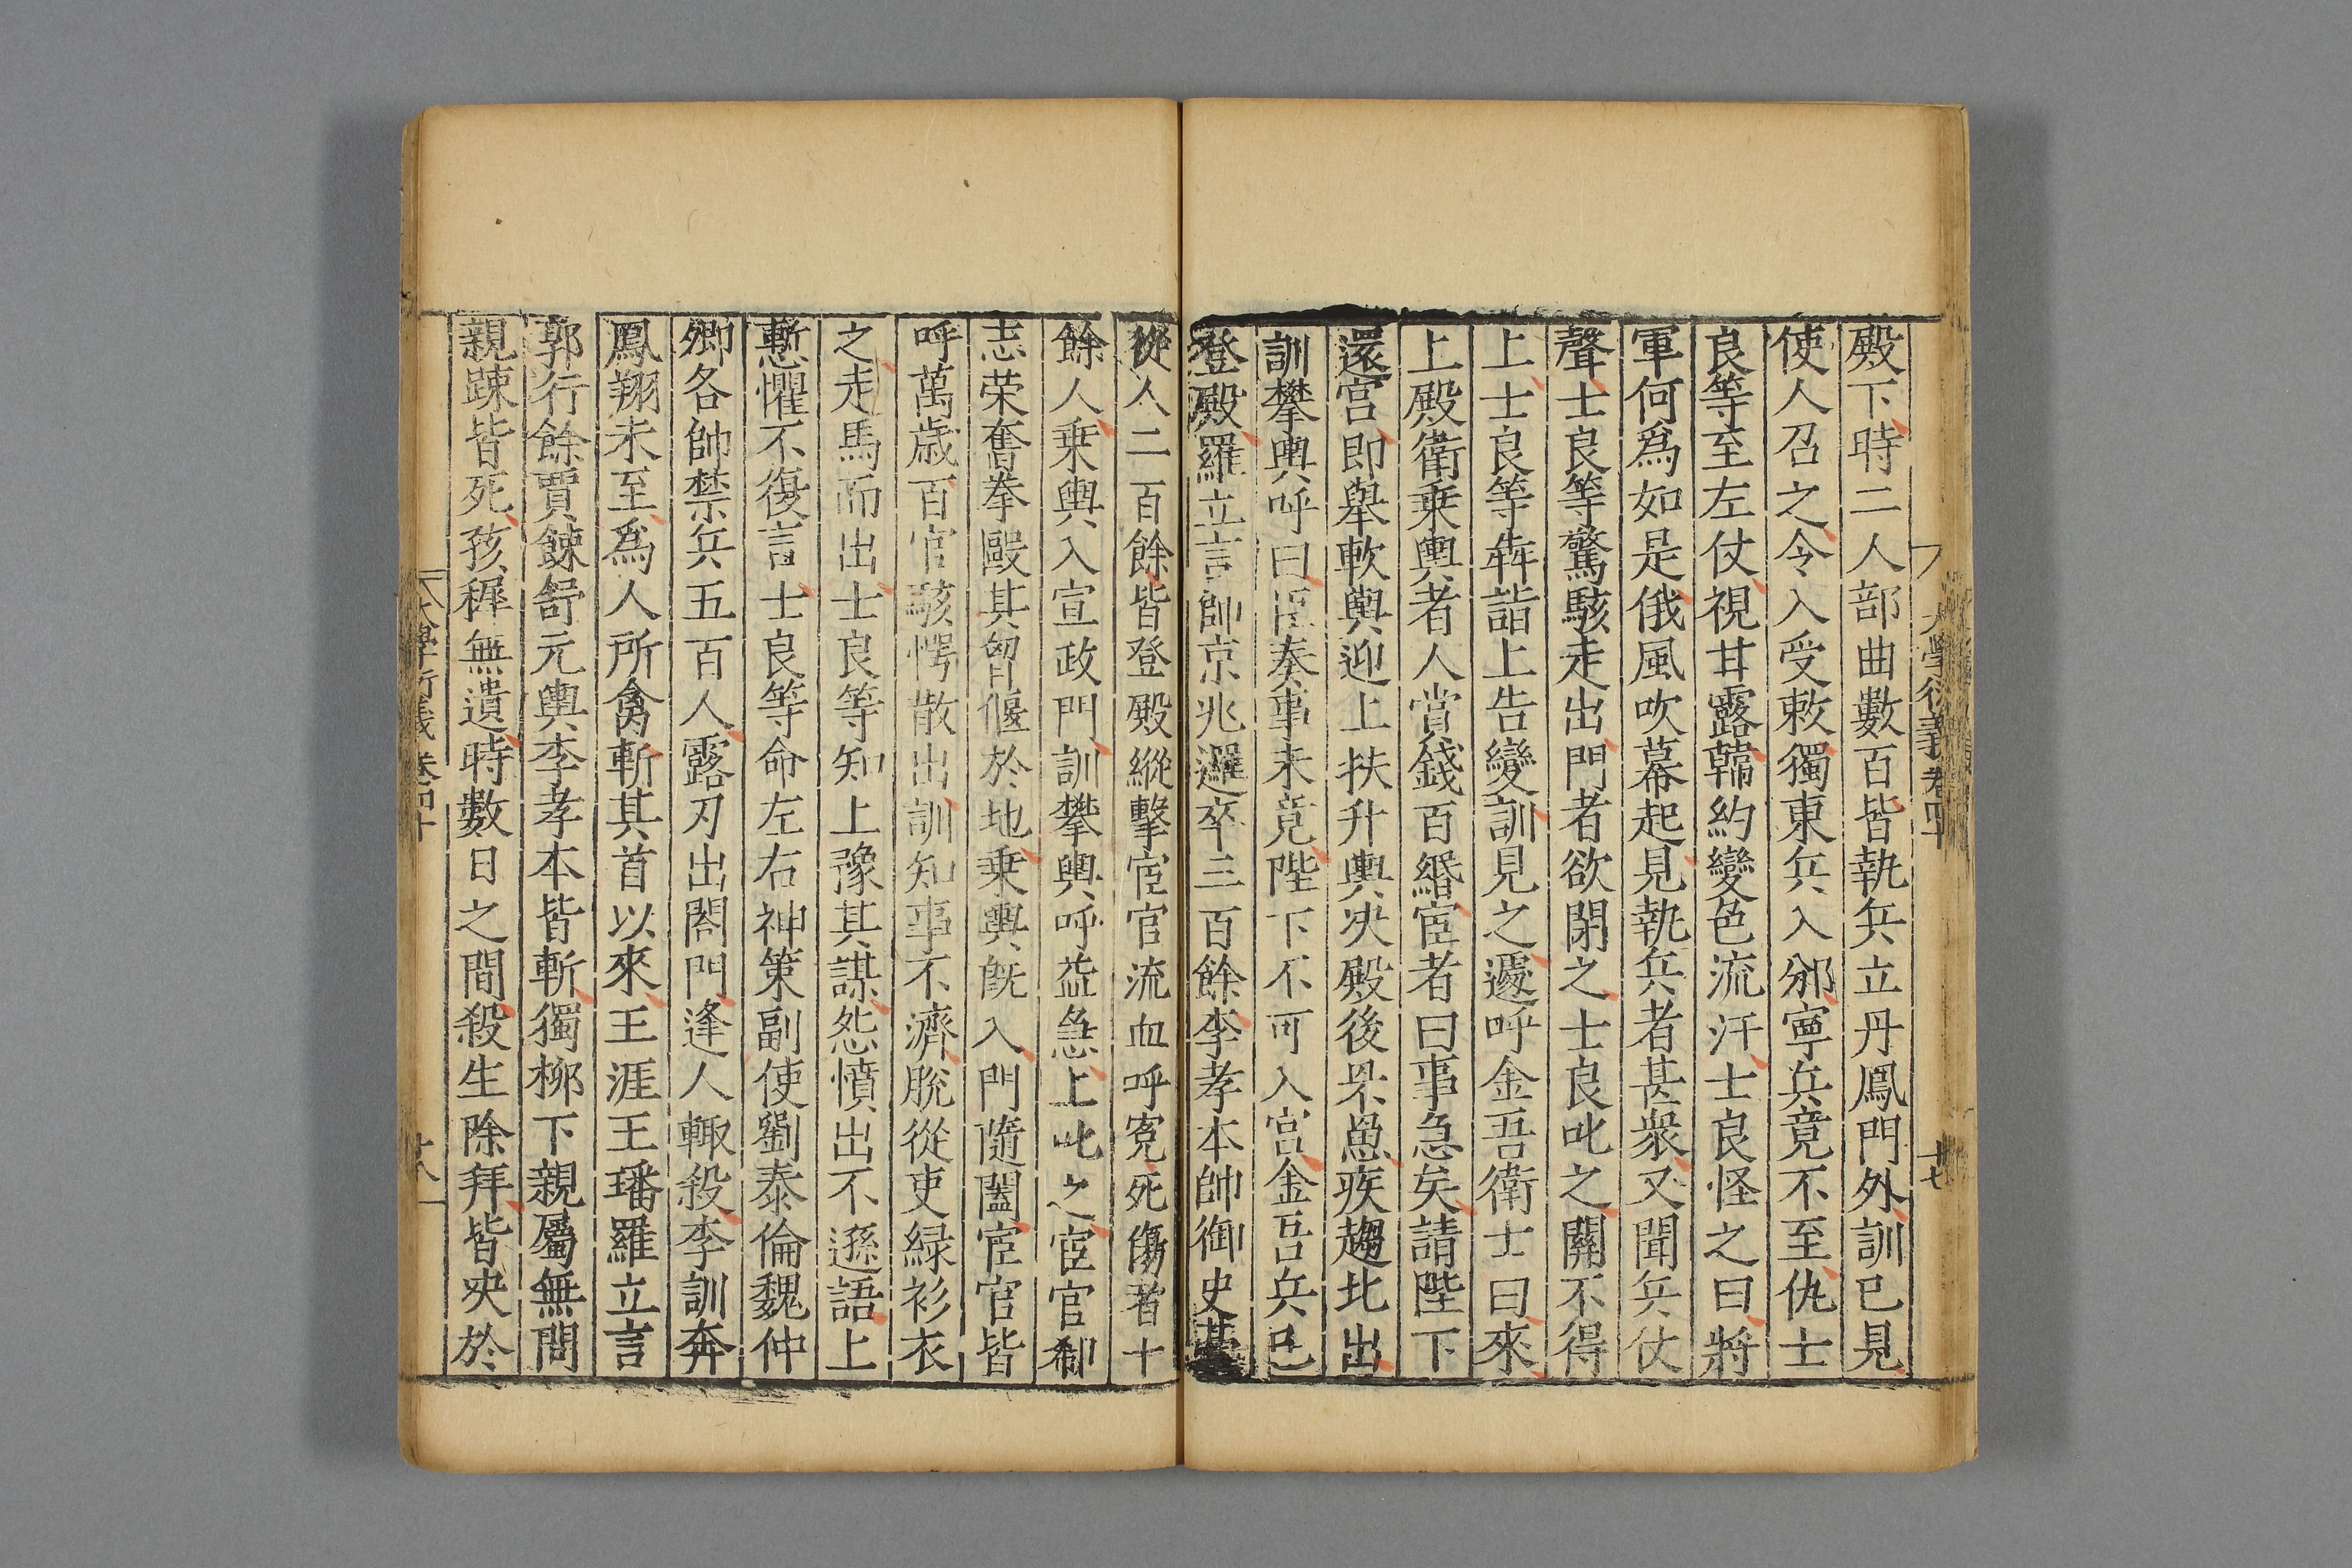 大學衍義卷四十
廿七
殿下時二人部曲數百皆執兵立丹鳳門外訓已見
使人召之令入受敕獨東兵入邠寧兵竟不至仇士
良等至左仗視甘露韓約變色流汗士良怪之曰將
軍何爲如是俄風吹幕起見執兵者甚衆又聞兵仗
聲士良等驚駭走出門者欲閉之士良叱之關不得
上士良等奔詣上告變訓見之遽呼金吾衛士曰來
上殿衛乗輿者人賞錢百緡宦者曰事急矣請陛下
還宮即舉軟輿迎上扶升輿决殿後罘罳疾趨北出
訓攀輿呼曰臣奏事未竟陛下不可入宮金吾兵已
登殿羅立言帥京兆邏卒三百餘李孝本帥御史䑓
從人二百餘皆登殿縱擊宦官流血呼寃死傷者十
餘人乗輿入宣政門訓攀輿呼益急上叱之宦官郗
志荣奮拳毆其胷偃於地乗輿旣入門隨闔宦官皆
呼萬歳百官駭愕散出訓知事不濟脫從吏緑衫衣
之走馬而出士良等知上豫其謀怨憤出不遜語上
慙懼不復言士良等命左右神策副使劉泰倫魏仲
卿各帥禁兵五百人露刃出閤門逢人輙殺李訓奔
鳳翔未至爲人所禽斬其首以來王涯王璠羅立言
郭行餘賈餗舒元輿李孝本皆斬獨柳下親屬無問
親踈皆死孩穉無遺時數日之間殺生除拜皆决於
大學衍義卷四十
廿八